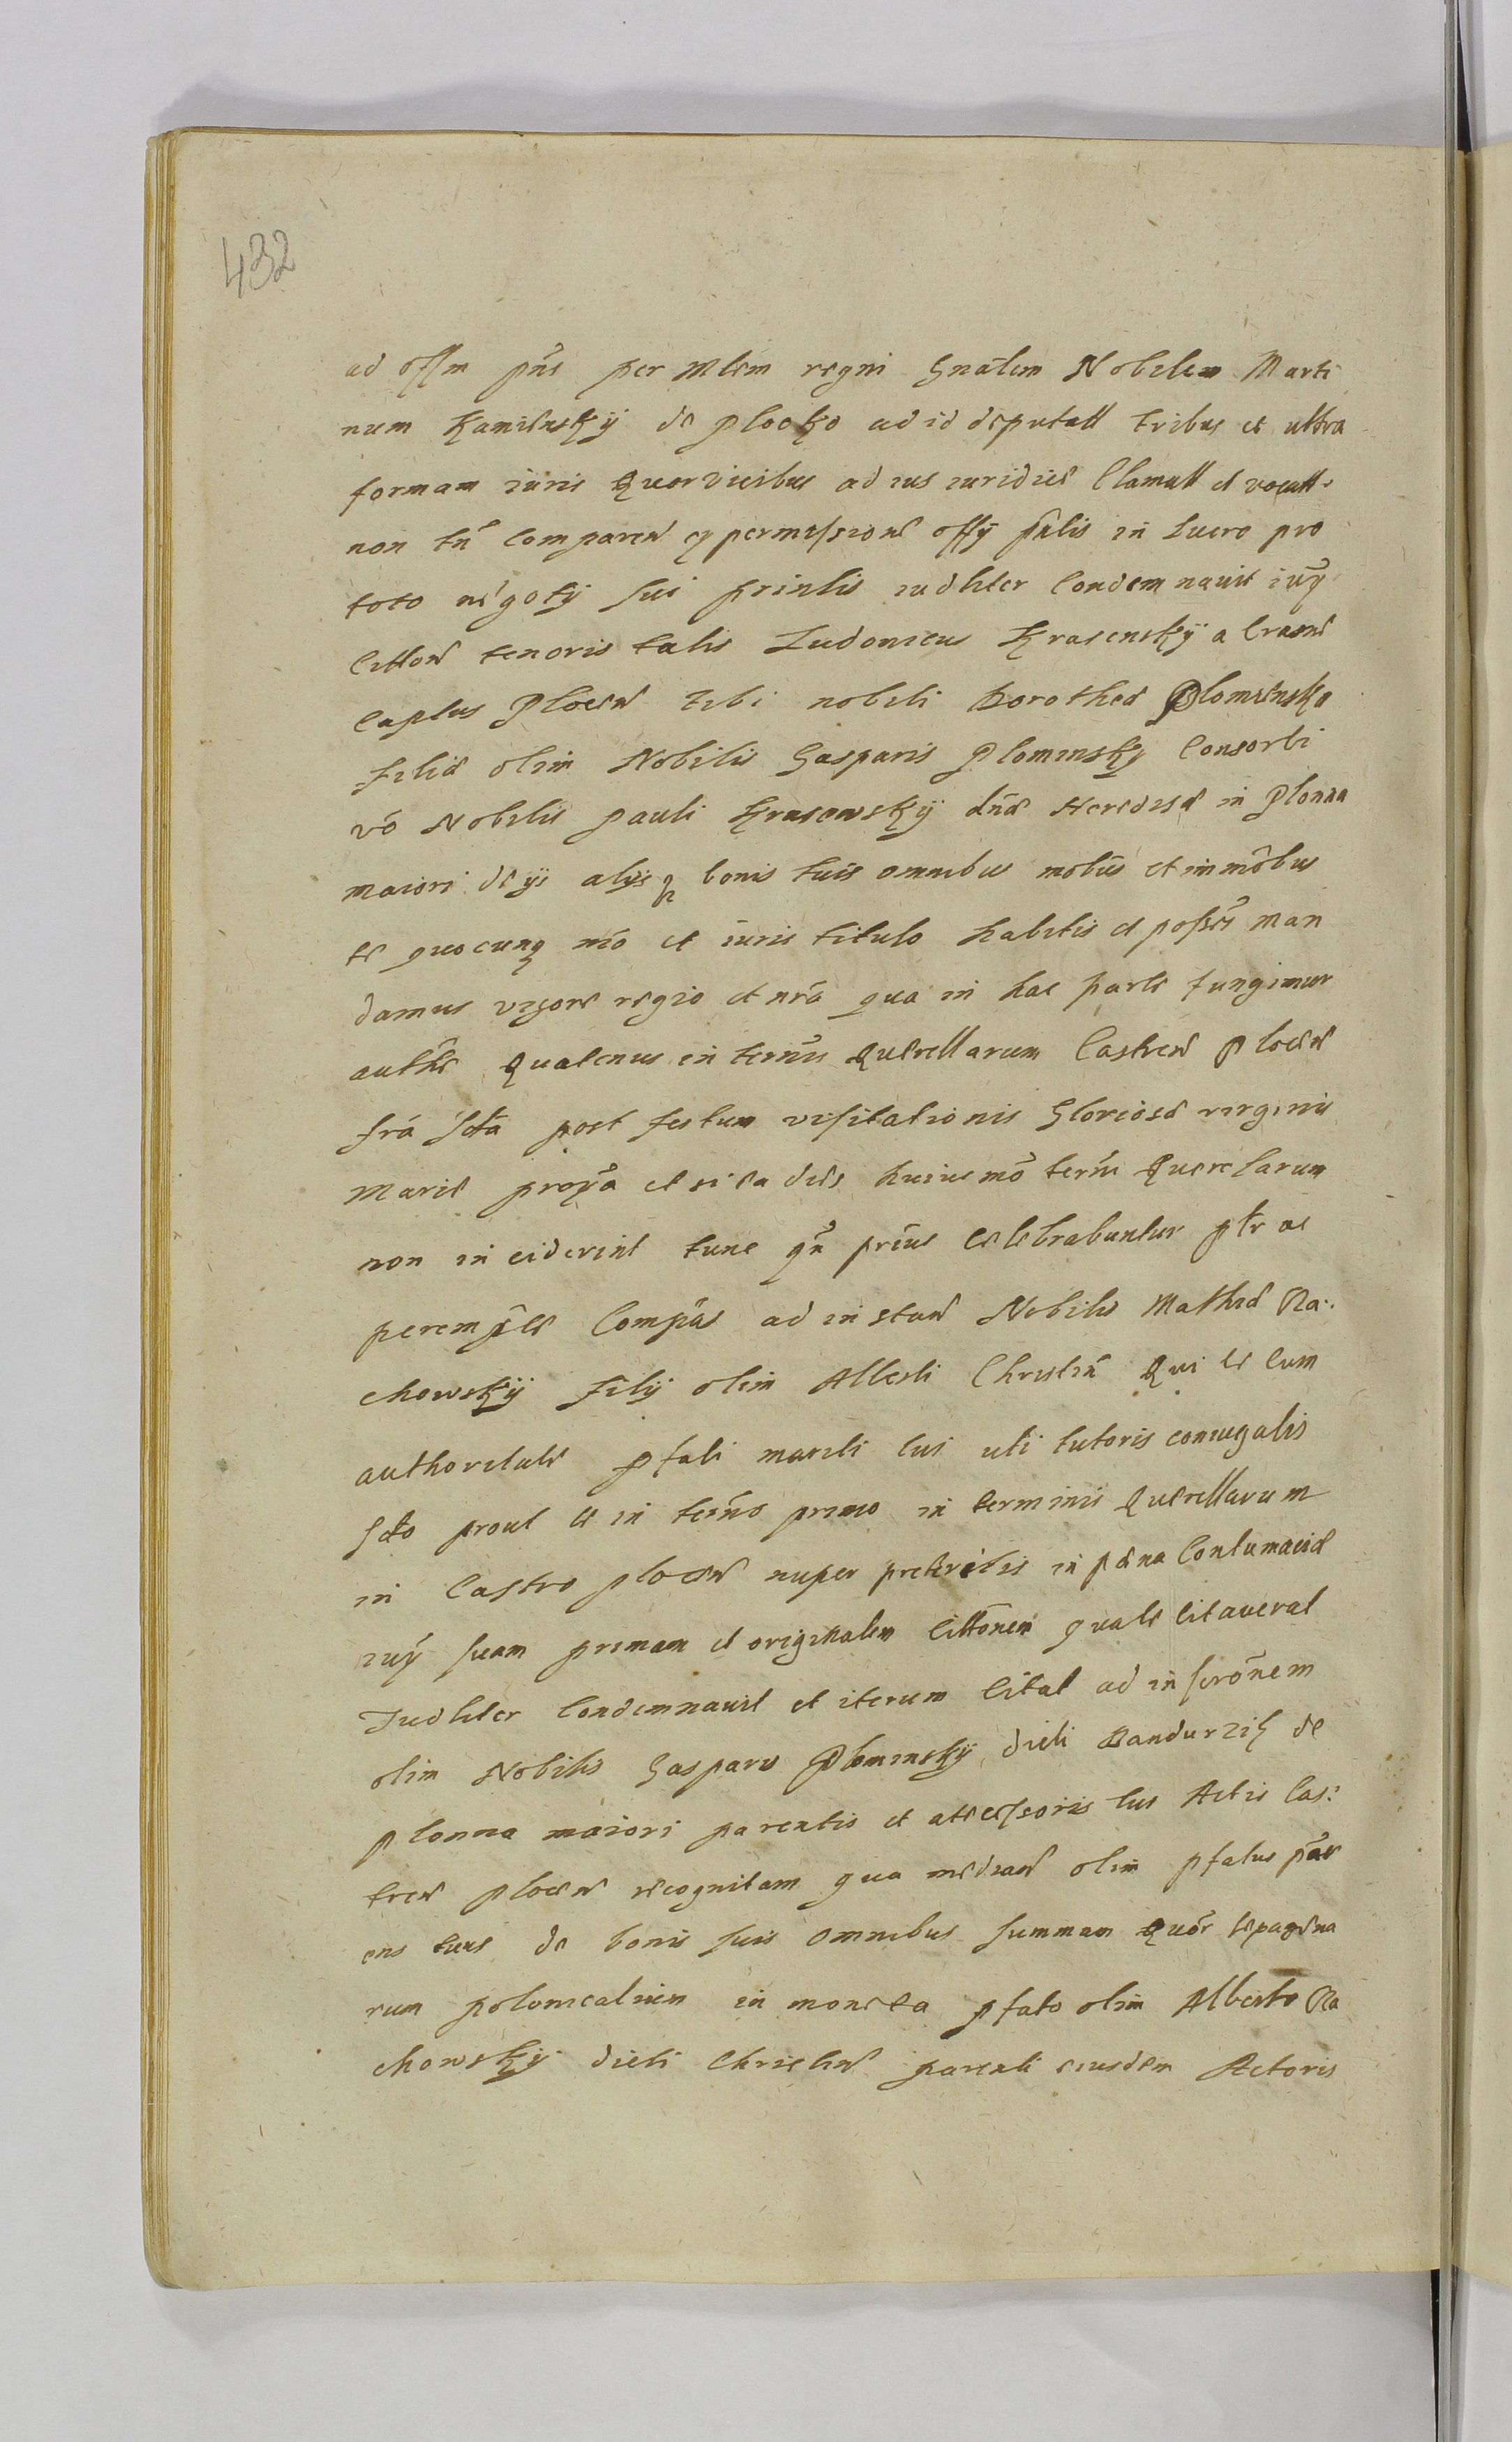 432
ad offm pñs per Mlem regni Gnãlem Nobilem Marti
num Kamiensky de Plocko ad id deputatt tribus et ultra
formam iuris quor vicibus ad ius iuridice Clamatt et vocatt.
non tñ comparen ex permissione offy pñlis in lucro pro
toto negoty sui prinlis iudlter Condemnavit iuxᵃ
Citton tenoris talis Ludovicus Krasensky a Crasne
Captus Plocen Tibi nobili Dorothea Plominska
filia olim Nobilis Gasparis Plominsky Consorti
vó Nobilis Pauli Krasowsky dña Heredisq in Plonna
maiori de ijs alysq bonis tuis omnibus mobus et immobus
te quocunq mó et iuris titulo habitis et possis man
damus vigore regio et nrá qua in hac parte fungimur
authte quatenus in termis querellarum Castren Plocen
fra scta post festum visitationis Gloriosa virginis
Marie proxa et si ea dies huiusmo termi querelarum
non in ciderint tunc qñ prius celebrabuntur ptr ac
peremptie Compas ad instan Nobilis Mathia Ra.
chowsky filij olim Alberti Christin qui te cum
authoritate pfati mariti tui uti tutoris coniugalis
scto prout et in termo primo in terminis querellarum
in Castro plocen nuper preteritis in pœna Contumacia
iuxᵃ suam primam et originalem cittonem quate citaverat
Iudlter Condemnavit et iterum Citat ad inscronem
olim Nobilis Gasparis Plominsky dicti Bandurzik de
plonna maiori parentis et antecessoris tui Actis Cas:
tren plocen recognitam qua median olim pfatus par
ens tuus de bonis suis omnibus summam quor sexagena
rum polonicalium in moneta pfato olim Alberto Ra
chowsky dicti Christin parenti eiusdem Actoris